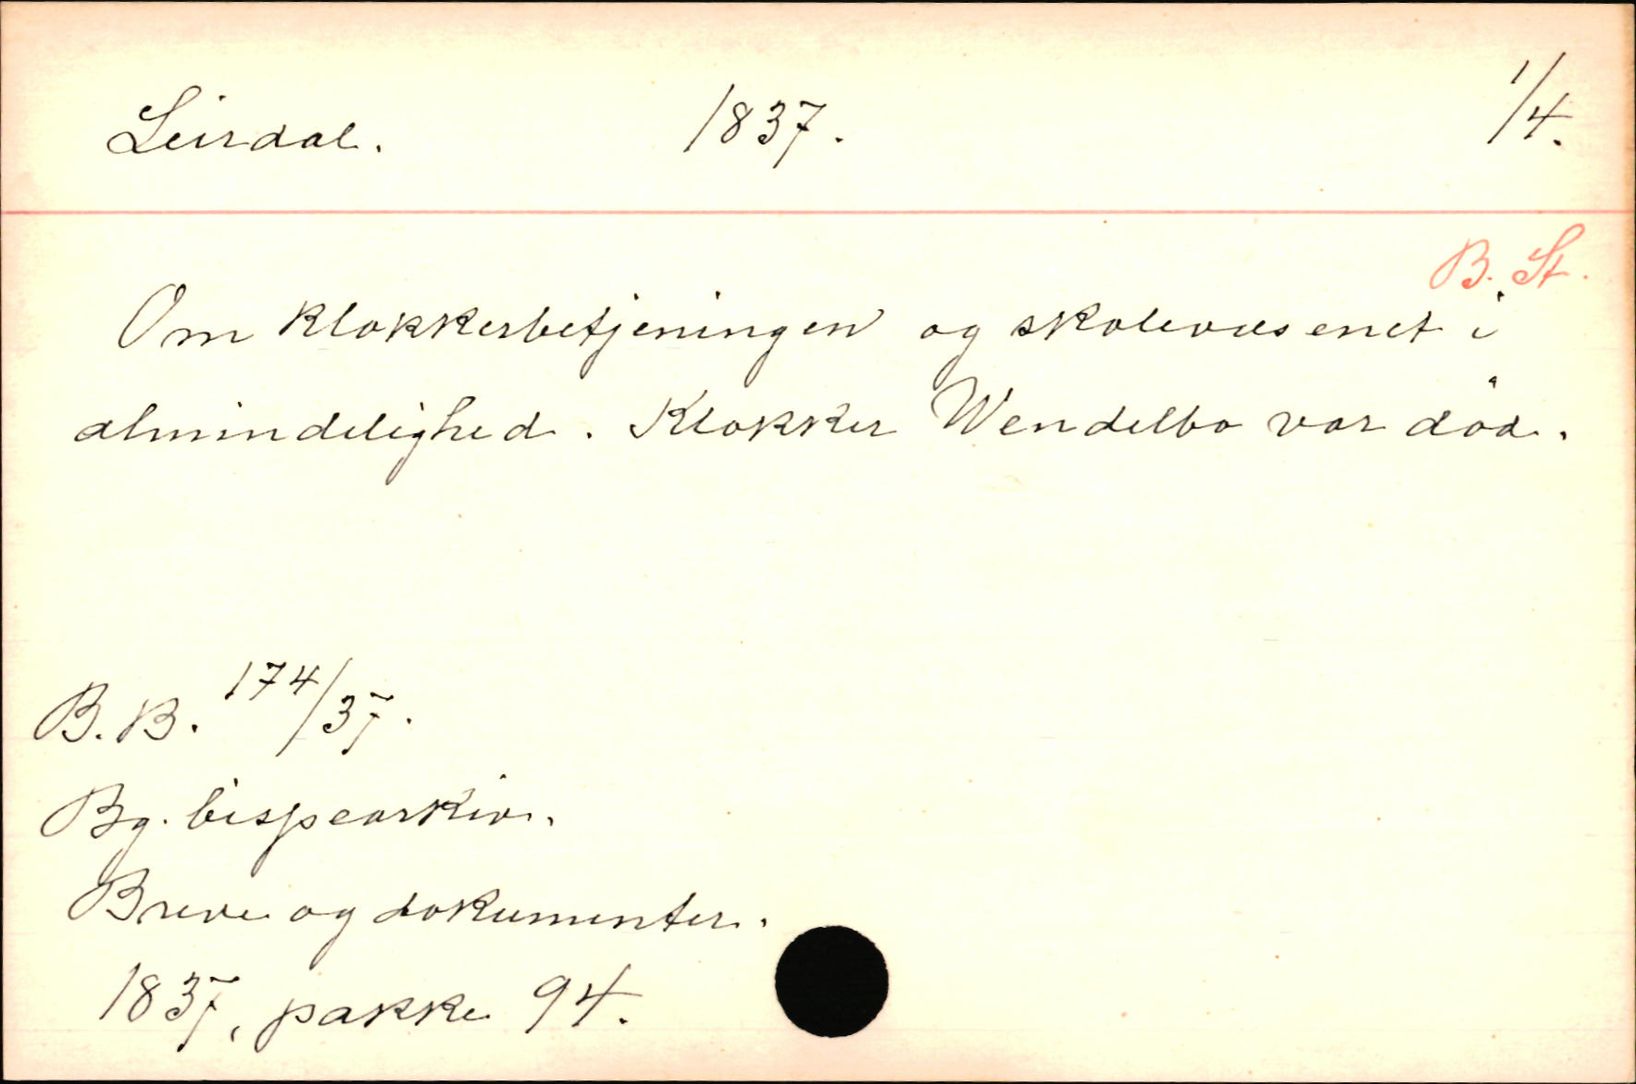 Leirdal. 1837. 1/4.
B. St.
Om klokkerbetjeningen og skolevæsenet i
almindelighed. Klokker Wendelbo var död.
B.B. 174/37.
Bg. bispearkiv.
Breve og dokumenter.
1837, pakke 94.